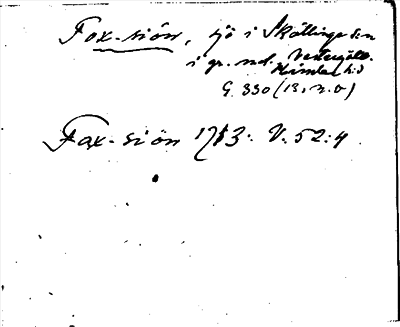 Fox-siön, sjö i Skällinge sn
i gr. md. Västergötl.
Himle hd
G. 330 (13, n.o)
Fax-siön 1713: V. 52:4